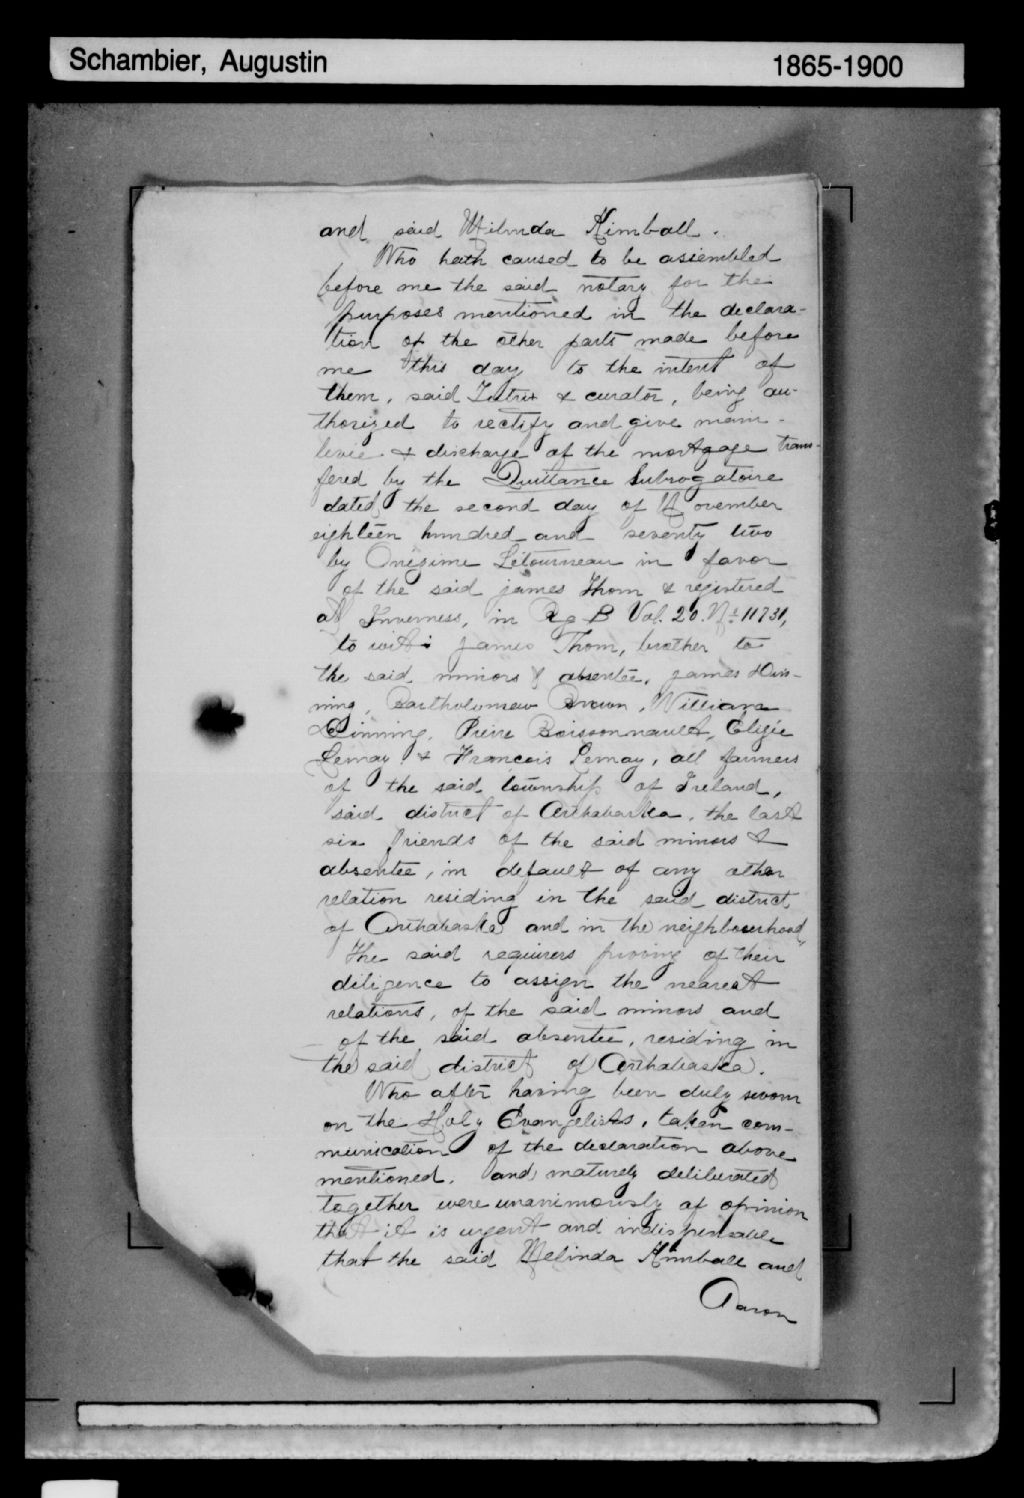 Schambier, Augustin 1865-1900
and said Milinda Kimball.
Who hath caused to be assembled
before me the said notary for the
purposes mentioned in the declara-
tion of the other parts made before
me this day to the intent of
them, said Tutrix & curator, being au-
thorized to rectify and give main-
levée & discharge of the mortgage trans-
fered by the Quittance Subrogatoire
dated the second day of November
eighteen hundred and seventy two
by Onézime Létourneau in favor
of the said james Thom & registered
at Inverness, in Reg B Vol. 20. No 11731,
to wit: James Thom, brother to
the said minors & absentee, james Din-
ning, Bartholomew Brown, William
Dinning, Pierre Boissonnault, Eligie
Lemay & Francois Lemay, all farmers
of the said township of Ireland,
said district of Arthabaska, the last
six friends of the said minors &
absentee, in default of any other
relation residing in the said district
of Arthabaska and in the neighbourhood,
The said requirers proving of their
diligence to assign the nearest
relations, of the said minors and
of the said absentee, residing in
the said district of Arthabaska.
Who after having been duly sworn
on the Holy Evangelists, taken com-
munication of the declaration above
mentioned, and maturely deliberated
together were unanimously of opinion
that it is urgent and indispensable
that the said Melinda Kimball and
Aaron